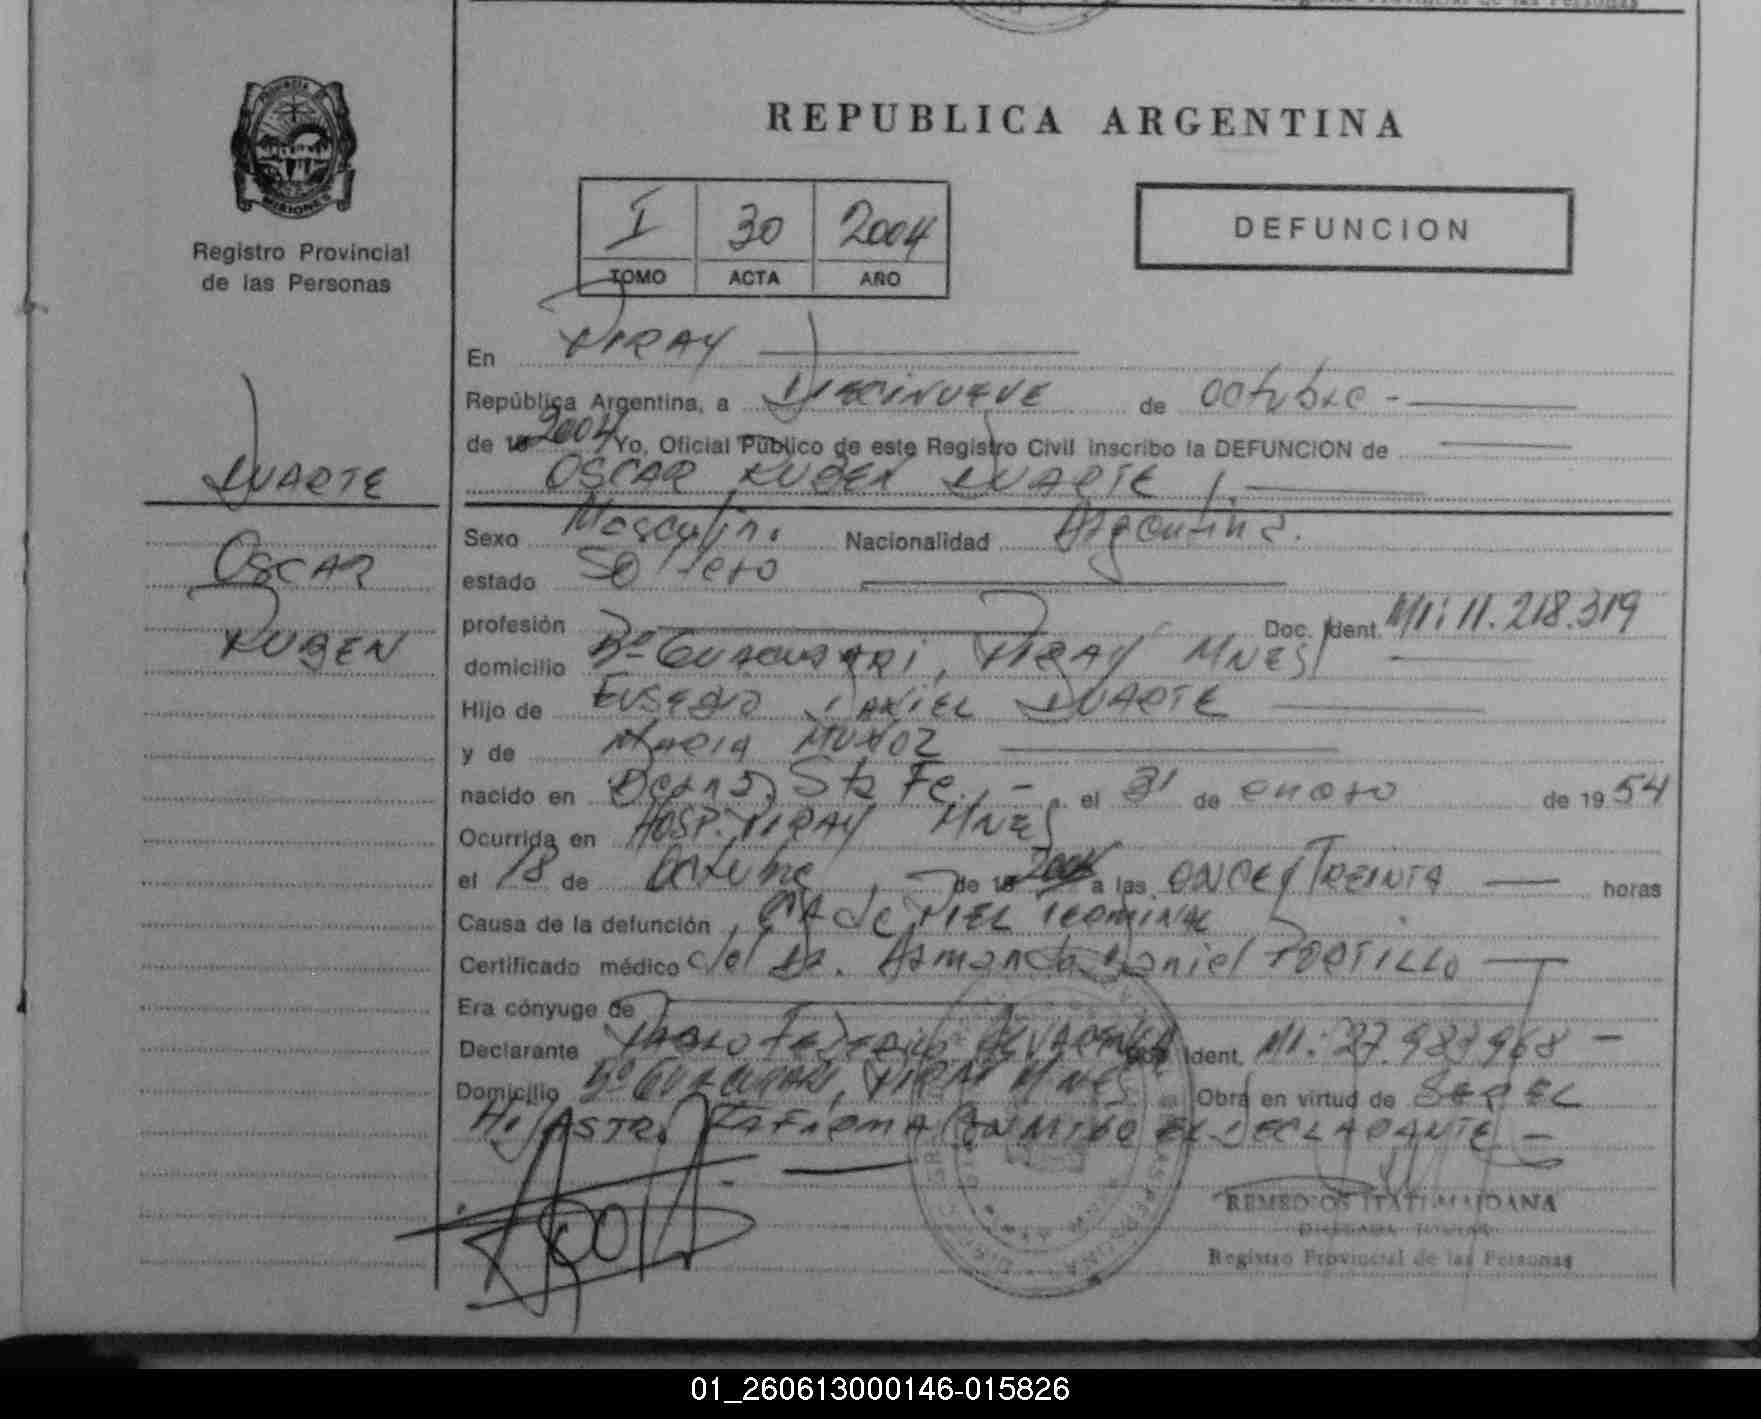 REPUBLICA ARGENTINA
PROVINCIA DE
MISIONES
Registro Provincial
de las Personas
I 30 2004
TOMO ACTA AÑO
DEFUNCION
DUARTE
OSCAR
RUBEN
En PIRAY
República Argentina, a DIECINUEVE de Octubre -
de 19 2004 Yo, Oficial Público de este Registro Civil inscribo la DEFUNCION de
OSCAR RUBEN DUARTE
Sexo Masculino Nacionalidad Argentina.
estado Soltero
profesión Doc. Ident. MI: 11.218.319
domicilio Bº GUACURARI, PIRAY MNES
Hijo de EUSEBIO DANIEL DUARTE
y de MARIA MUÑOZ
nacido en Sta Fe. - el 31 de enero de 1954
Ocurrida en HOSP. PIRAY MNES
el 18 de Octubre de 19 2004 a las ONCE y TREINTA horas
Causa de la defunción CA de PIEL TERMINAL
Certificado médico del Dr. Armando Daniel PORTILLO
Era cónyuge de
Declarante PABLO FEDERICO Doc. Ident. MI.: 27.983968 -
Domicilio Bº GUACURARI, PIRAY MNES Obra en virtud de SER EL
HIJASTRO. FIRMA CONMIGO EL DECLARANTE -
REMEDIOS ITATI MAIDANA
Registro Provincial de las Personas
01_260613000146-015826